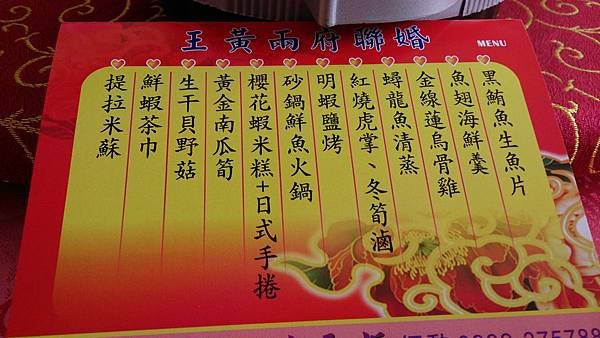 王黃兩府聯婚
MENU
黑鮪魚生魚片
魚翅海鮮羹
金線蓮烏骨雞
蟳龍魚清蒸
紅燒虎掌、冬筍滷
明蝦鹽烤
砂鍋鮮魚火鍋
櫻花蝦米糕+日式手捲
黃金南瓜筍
生干貝野菇
鮮蝦茶巾
提拉米蘇